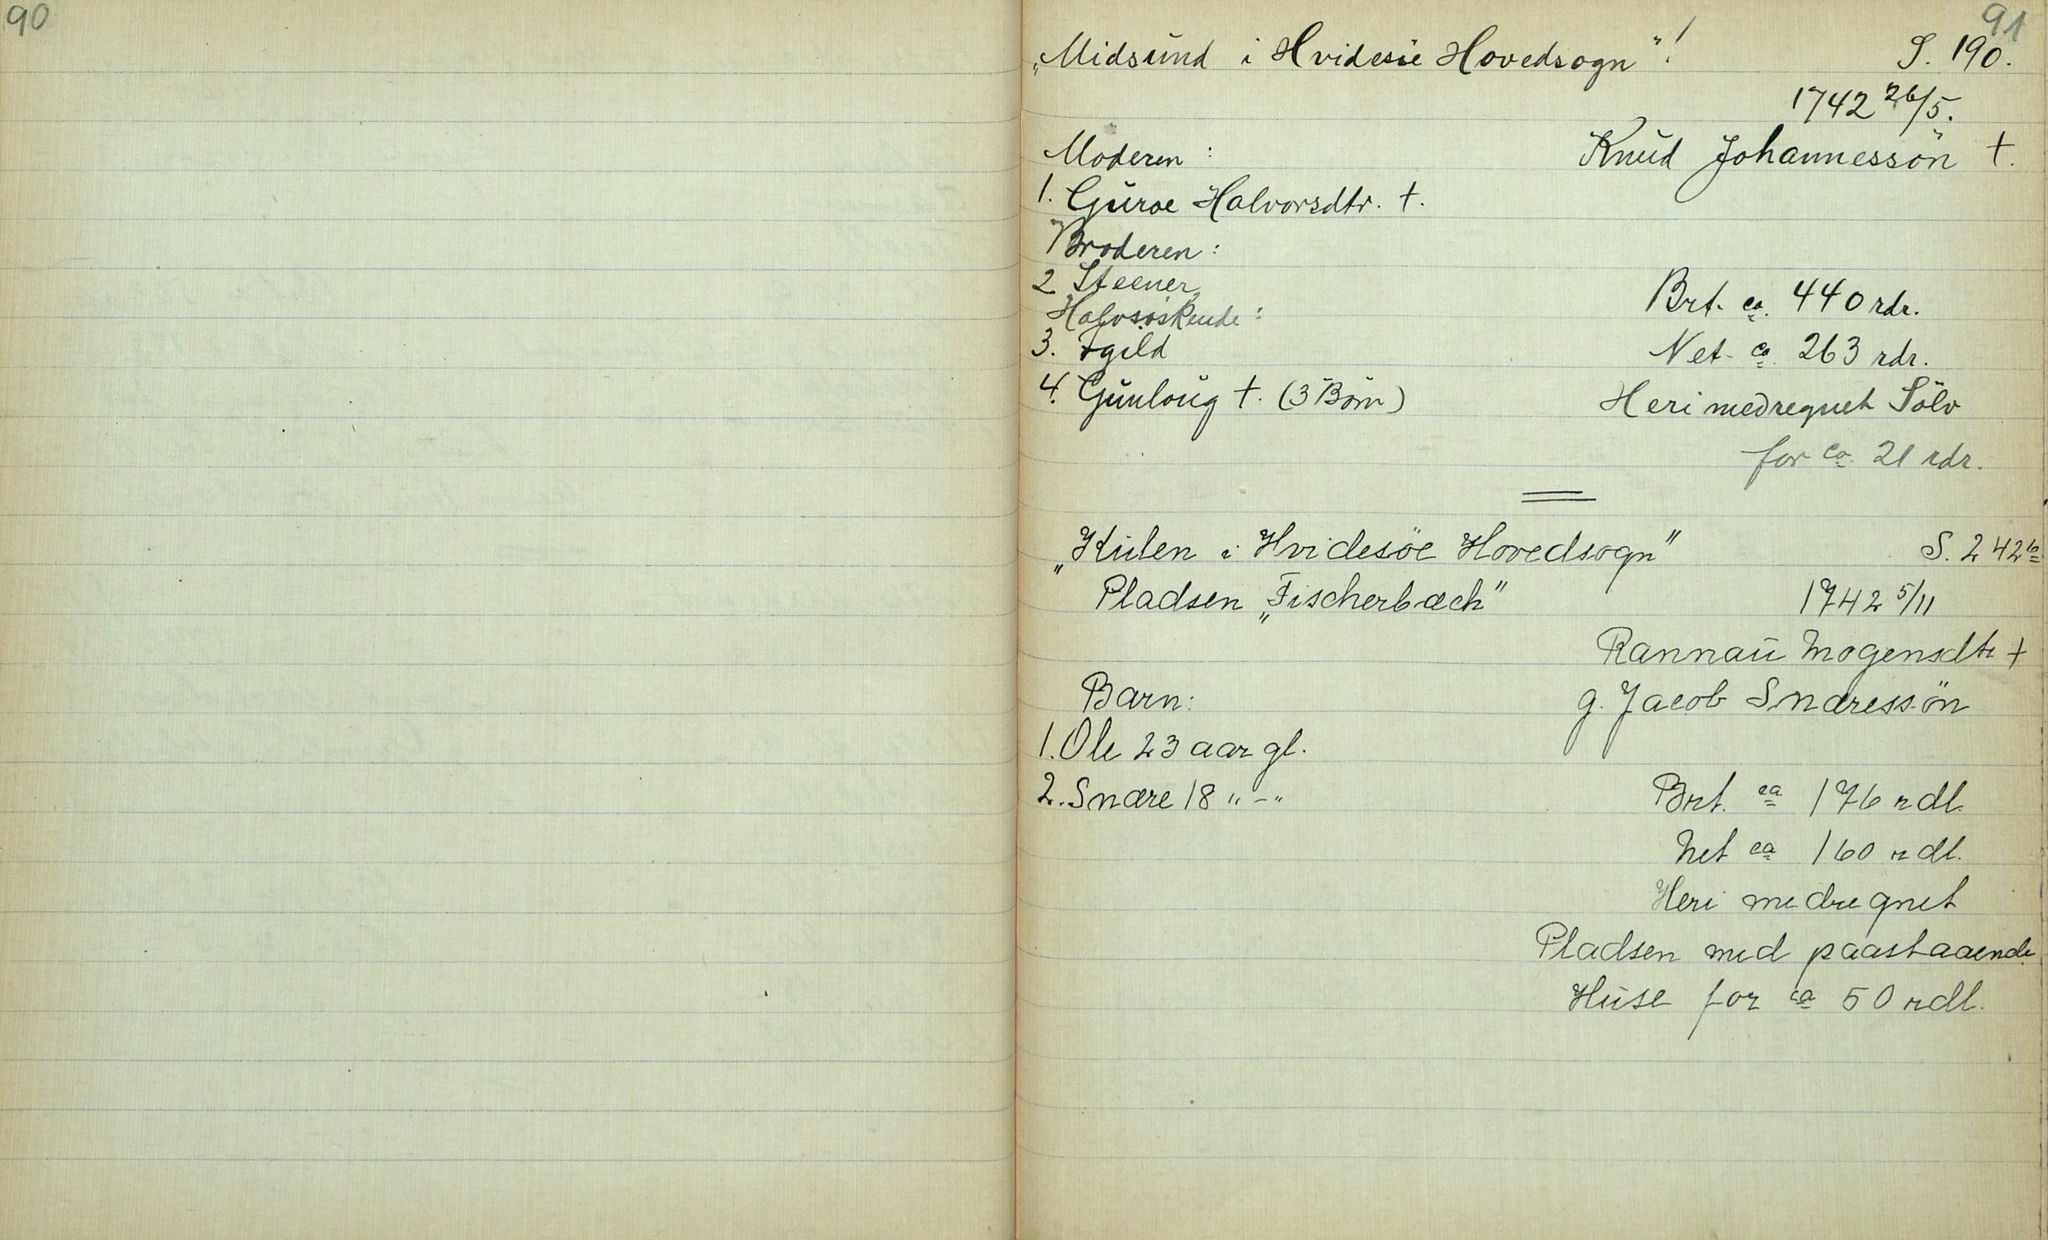 90
91
„Midsund i Hvidesöe Hovedsogn"!
S. 190.
1742 26/5.
Knud Johannessön †.
Moderen:
1. Guroe Halvorsdtr. †.
Broderen:
2 Steener
Halvsöskende:
3. Egild
4. Gunloug †. (3 Börn)
Brt. ca. 440 rdr.
Net. ca. 263 rdr.
Heri medregnet Sölv
for ca. 21 rdr.
„Kulen i Hvidesöe Hovedsogn"
S. 242b
Pladsen „Fischerbæch"
1742 5/11
Rannau Mogensdtr †
g. Jacob Snaressön
Barn:
1. Ole 23 aar gl.
2. Snare 18 " - "
Brt. ca 176 rdl.
Net ca 160 rdl.
Heri medregnet
Pladsen med paastaaende
Huse for ca 50 rdl.